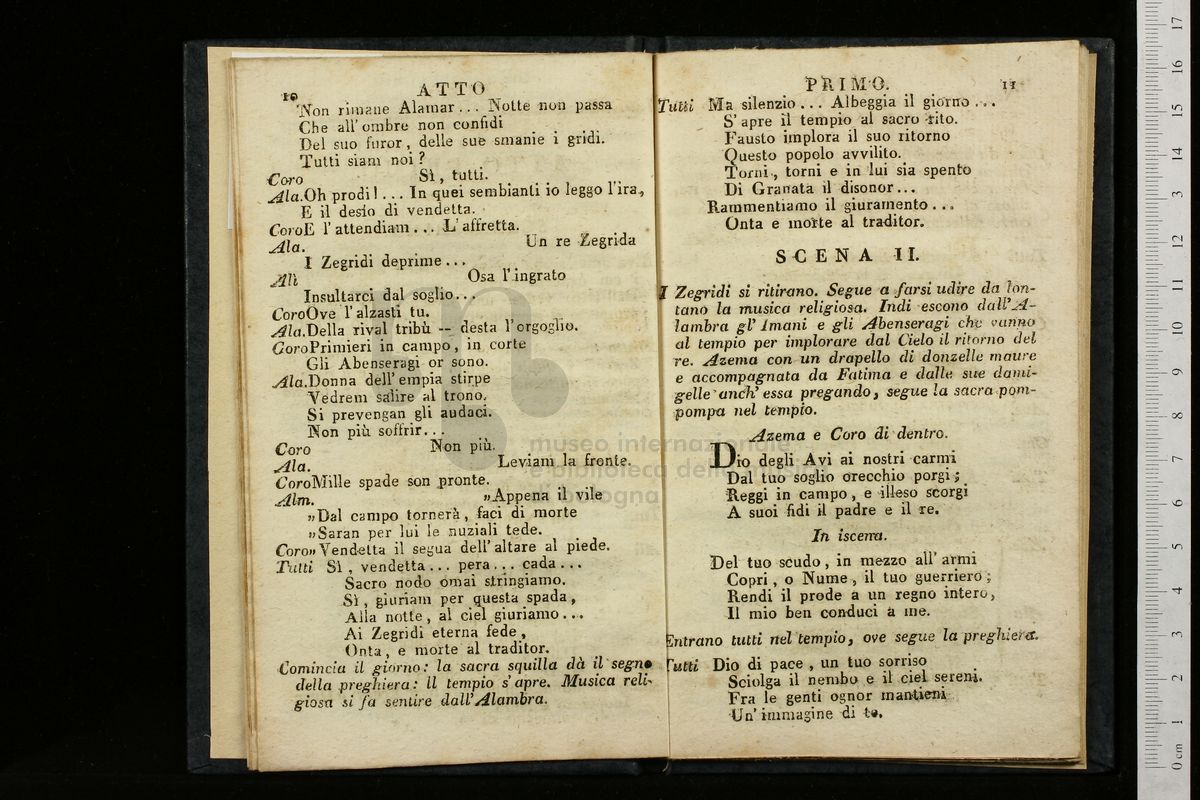 10 ATTO
Non rimane Alamar... Notte non passa
Che all' ombre non confidi
Del suo furor, delle sue smanie i gridi.
Tutti siam noi?
Coro Sì, tutti.
Ala. Oh prodi!... In quei sembianti io leggo l'ira,
E il desio di vendetta.
Coro E l' attendiam... L' affretta.
Ala. Un re Zegrida
I Zegridi deprime...
Alì Osa l' ingrato
Insultarci dal soglio...
Coro Ove l' alzasti tu.
Ala. Della rival tribù -- desta l' orgoglio.
Coro Primieri in campo, in corte
Gli Abenseragi or sono.
Ala. Donna dell' empia stirpe
Vedrem salire al trono.
Si prevengan gli audaci.
Non più soffrir...
Coro Non più.
Ala. Leviam la fronte.
Coro Mille spade son pronte.
Alm. „Appena il vile
„Dal campo tornerà, faci di morte
„Saran per lui le nuziali tede.
Coro „Vendetta il segua dell' altare al piede.
Tutti Sì, vendetta... pera... cada...
Sacro nodo omai stringiamo.
Sì, giuriam per questa spada,
Alla notte, al ciel giuriamo...
Ai Zegridi eterna fede,
Onta, e morte al traditor.
Comincia il giorno: la sacra squilla dà il segno
della preghiera: il tempio s' apre. Musica reli-
giosa si fa sentire dall' Alambra.
PRIMO. 11
Tutti Ma silenzio... Albeggia il giorno...
S' apre il tempio al sacro rito.
Fausto implora il suo ritorno
Questo popolo avvilito.
Torni, torni e in lui sia spento
Di Granata il disonor...
Rammentiamo il giuramento...
Onta e morte al traditor.
SCENA II.
I Zegridi si ritirano. Segue a farsi udire da lon-
tano la musica religiosa. Indi escono dall' A-
lambra gl' Imani e gli Abenseragi che vanno
al tempio per implorare dal Cielo il ritorno del
re. Azema con un drapello di donzelle maure
e accompagnata da Fatima e dalle sue dami-
gelle anch' essa pregando, segue la sacra pom-
pompa nel tempio.
Azema e Coro di dentro.
Dio degli Avi ai nostri carmi
Dal tuo soglio orecchio porgi;
Reggi in campo, e illeso scorgi
A suoi fidi il padre e il re.
In iscena.
Del tuo scudo, in mezzo all' armi
Copri, o Nume, il tuo guerriero;
Rendi il prode a un regno intero,
Il mio ben conduci a me.
Entrano tutti nel tempio, ove segue la preghiera.
Tutti Dio di pace, un tuo sorriso
Sciolga il nembo e il ciel sereni.
Fra le genti ognor mantieni
Un' immagine di te.
museo internazionale
e biblioteca della musica
di bologna
0 cm 1 2 3 4 5 6 7 8 9 10 11 12 13 14 15 16 17